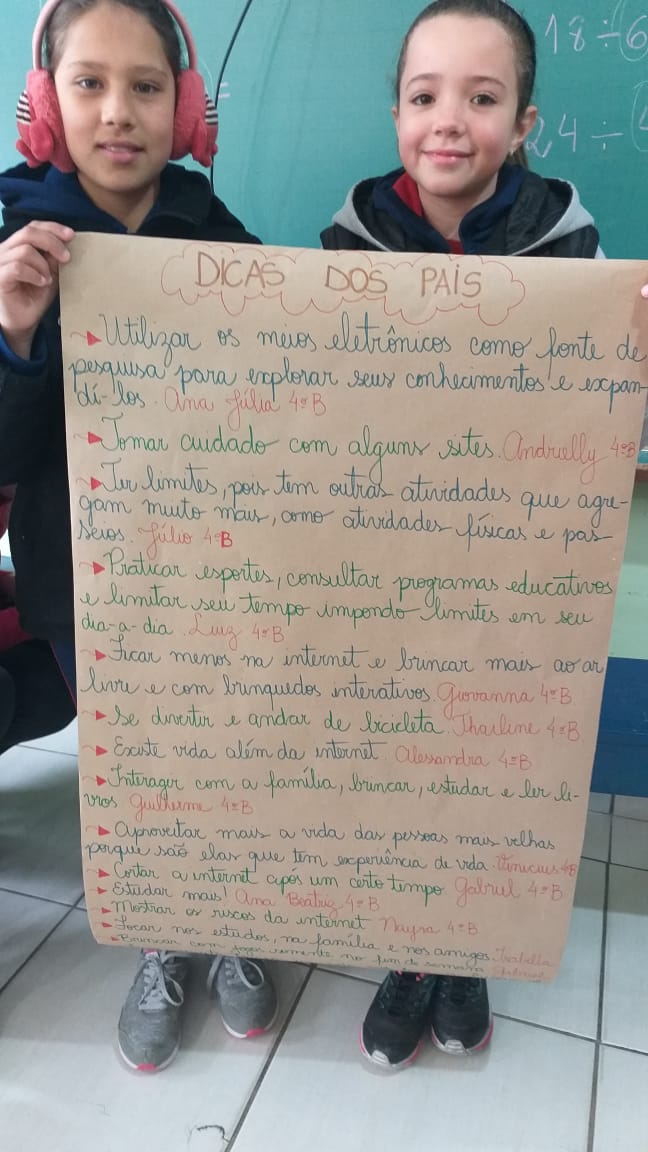 18 ÷ 6
24 ÷
=
DICAS DOS PAIS
Utilizar os meios eletrônicos como fonte de
pesquisa para explorar seus conhecimentos e expan-
dí-los. Ana Júlia 4ºB
Tomar cuidado com alguns sites. Andrielly 4ºB
Ter limites, pois tem outras atividades que agre-
gam muito mais, como atividades físicas e pas-
seios. Júlio 4ºB
Praticar esportes, consultar programas educativos
e limitar seu tempo impondo limites em seu
dia-a-dia. Luiz 4ºB
Ficar menos na internet e brincar mais ao ar
livre e com brinquedos interativos. Giovanna 4ºB.
Se divertir e andar de bicicleta. Tharline 4ºB.
Existe vida além da internet. Alessandra 4ºB
Interagir com a família, brincar, estudar e ler li-
vros Guilherme 4ºB
Aproveitar mais a vida das pessoas mais velhas
porque são elas que tem experiência de vida. Vinicius 4ºB
Cortar a internet após um certo tempo Gabriel 4ºB
Estudar mais! Ana Beatriz 4ºB
Mostrar os riscos da internet Nayra 4ºB
Focar nos estudos, na família e nos amigos. Isabella
Brincar com jogos somente no fim de semana